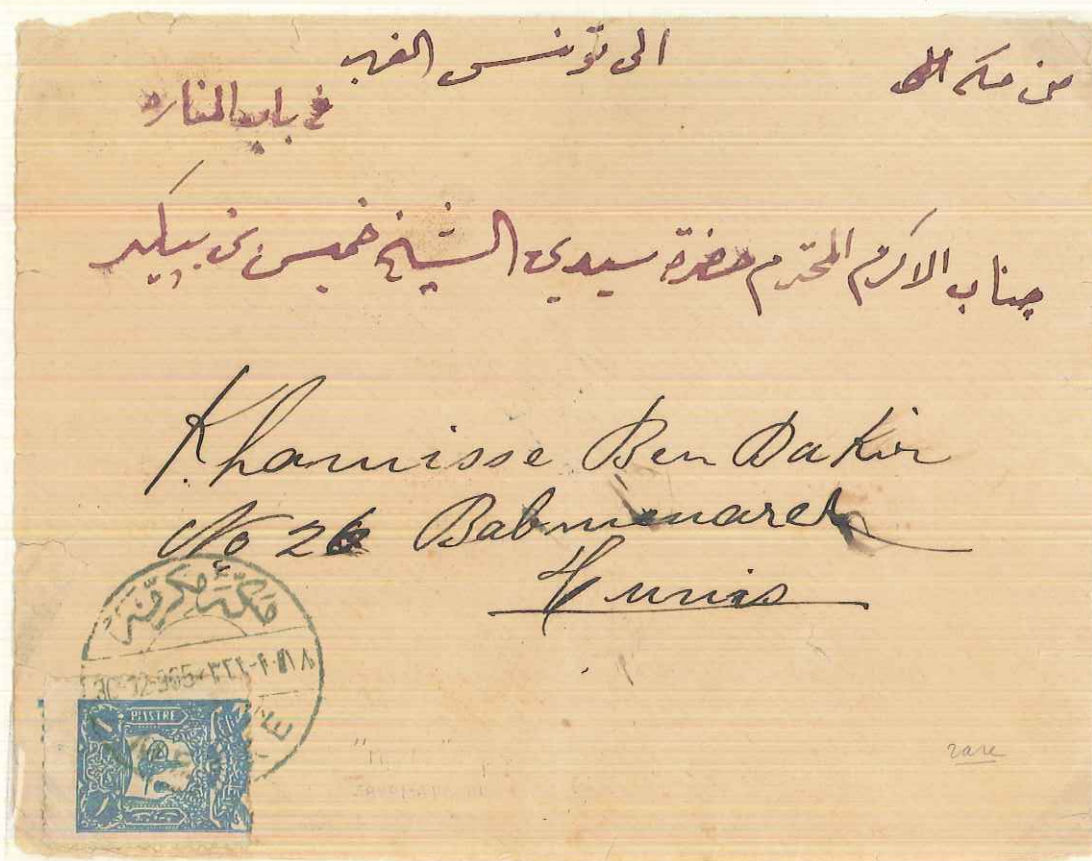 من مكه الى
الى تونس الغرب
في باب المناره
جناب الاكرم المحترم حضرة سيدي الشيخ خميس بن بيكير
Khamisse Ben Bakir
No 26 Babmenareh
Tunis
مكة مكرمة
PIASTRE
rare